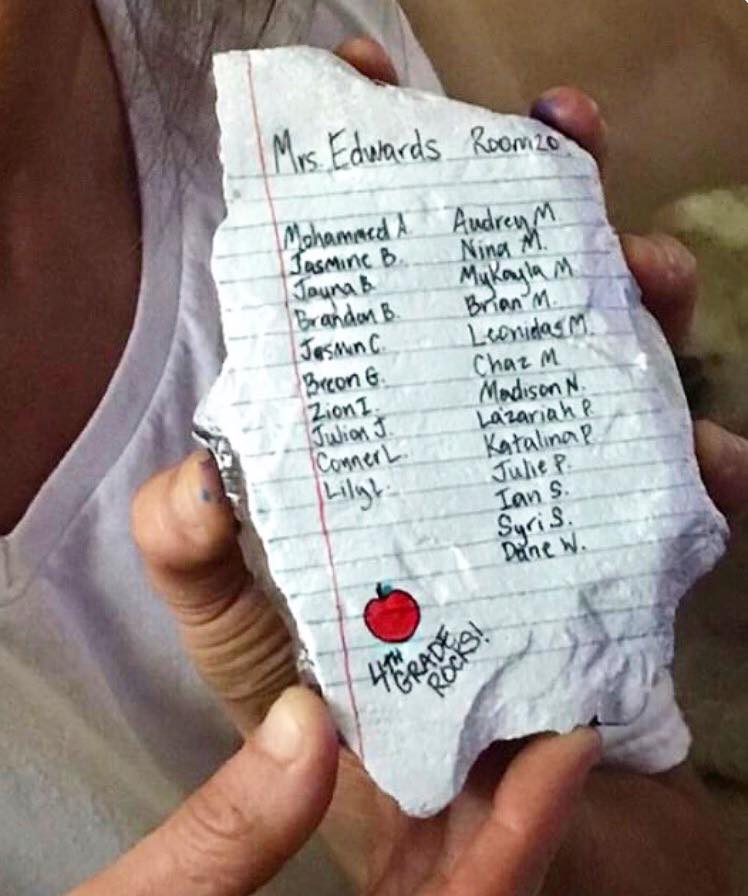 Mrs. Edwards Room 20
Mohammed A.
Jasmine B.
Jayna B.
Brandon B.
Jasmin C.
Breon G.
Zion I.
Julian J.
Conner L.
Lily L.
Audrey M.
Nina M.
Mykayla M
Brian M.
Leonidas M.
Chaz M
Madison N.
Lazariah P.
Katalina P.
Julie P.
Ian S.
Syri S.
Dane W.
4TH
GRADE
ROCKS!